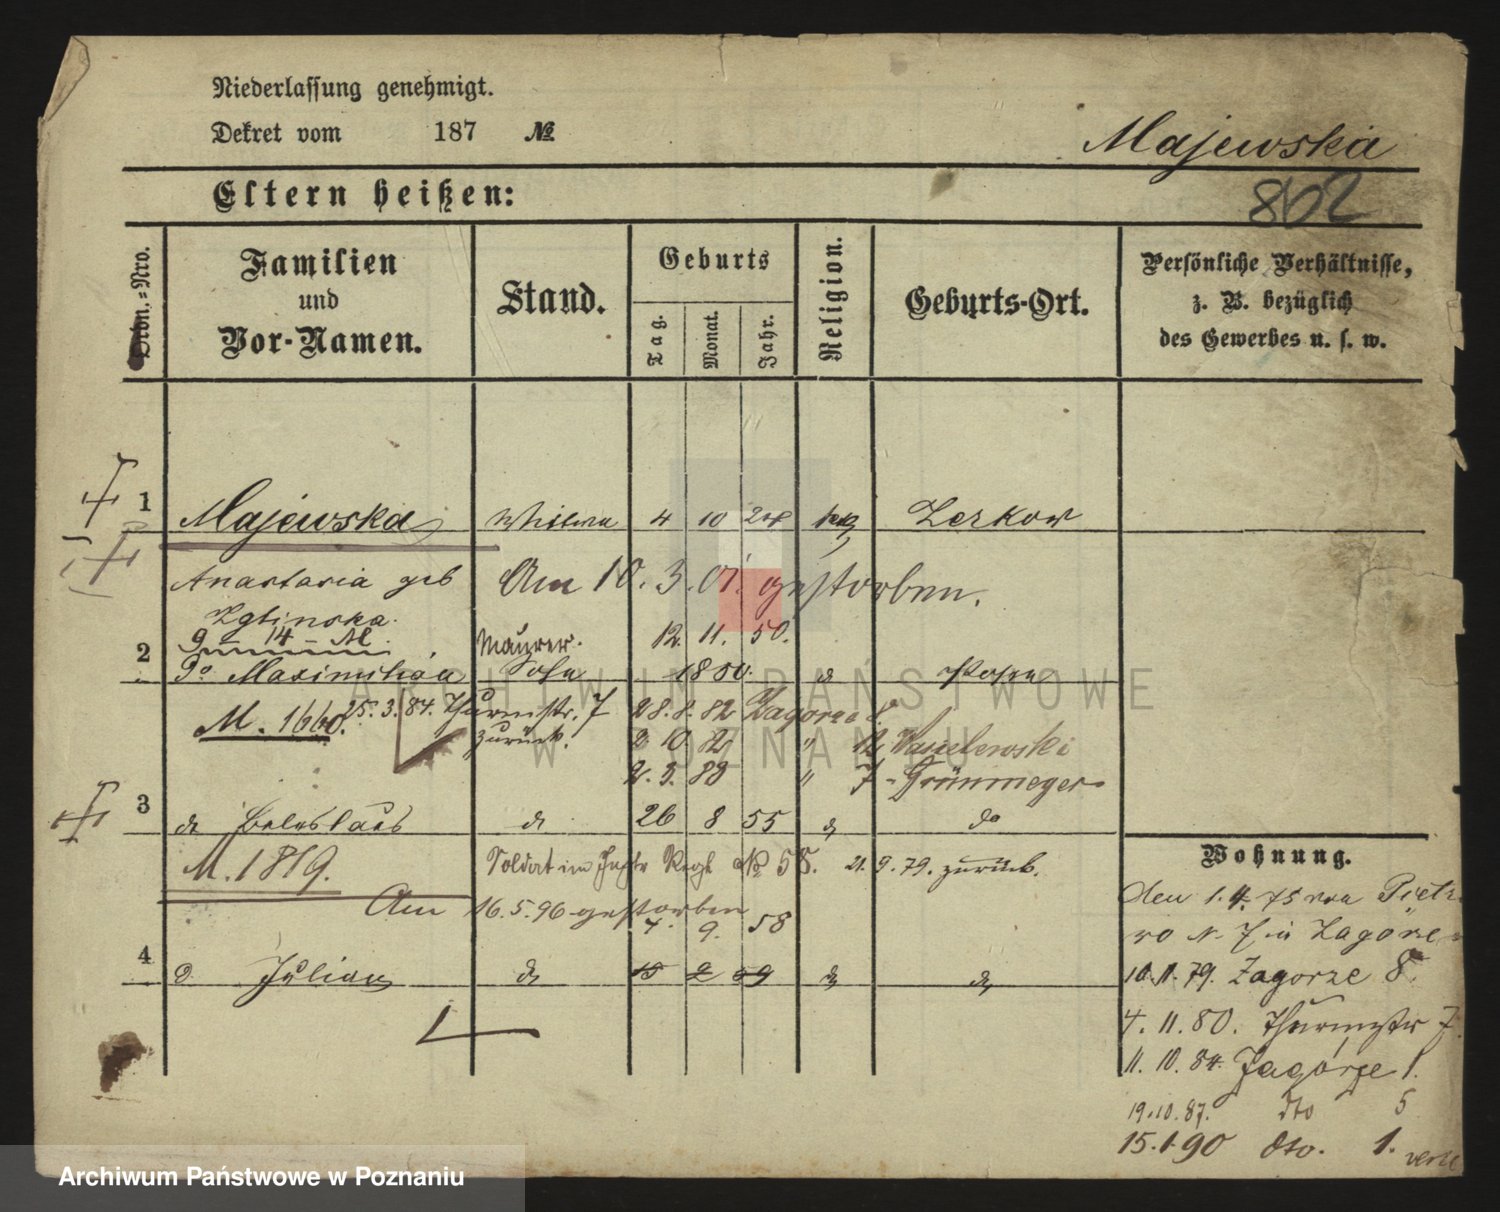 Niederlassung genehmigt.
Dekret vom 187 №
Majewska
Eltern heißen:
802
Ordn.=Nro.
Familien
und
Vor-Namen.
Stand.
Geburts
Tag.
Monat.
Jahr.
Religion.
Geburts-Ort.
Persönliche Verhältnisse,
z. B. bezüglich
des Gewerbes u. s. w.
1 Majewska Wittwe 4 10 24 kath Zerkow
Anastasia geb Am 10. 3. 01. gestorben.
14 - M
Maurer. 12. 11. 50.
2 do Maximilian Sohn 1850. d Posen
M. 1660. 25. 3. 84. Thurmstr. 7 28. 8. 82 Zagorze 8.
zurück. 2 10. 82 " 12
2. 3. 83 " 7 -
3 do Boleslaus do 26 8 55 do do
M. 1819. Soldat im Inftr Regt № 58. 21. 9. 79. zurück.
Am 16. 5. 96 gestorben
7. 9. 58
4 d Julian do 15 2 59 do do
Wohnung.
den 1. 4. 75 von Pietr
wo N. 7 in Zagorze
10. 11. 79. Zagorze 8.
4. 11. 80. Thurmstr 7.
11. 10. 84. Zagórze 1.
19. 10. 87. dto 5
15. 1. 90 dto. 1.
ARCHIWUM PAŃSTWOWE
W POZNANIU
Archiwum Państwowe w Poznaniu